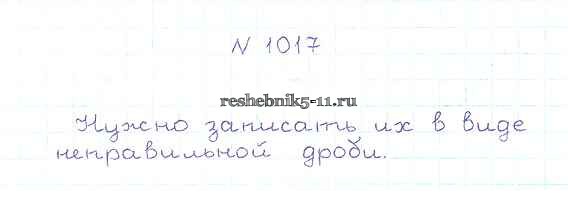 N 1017
reshebnik5-11.ru
Нужно записать их в виде
неправильной дроби.